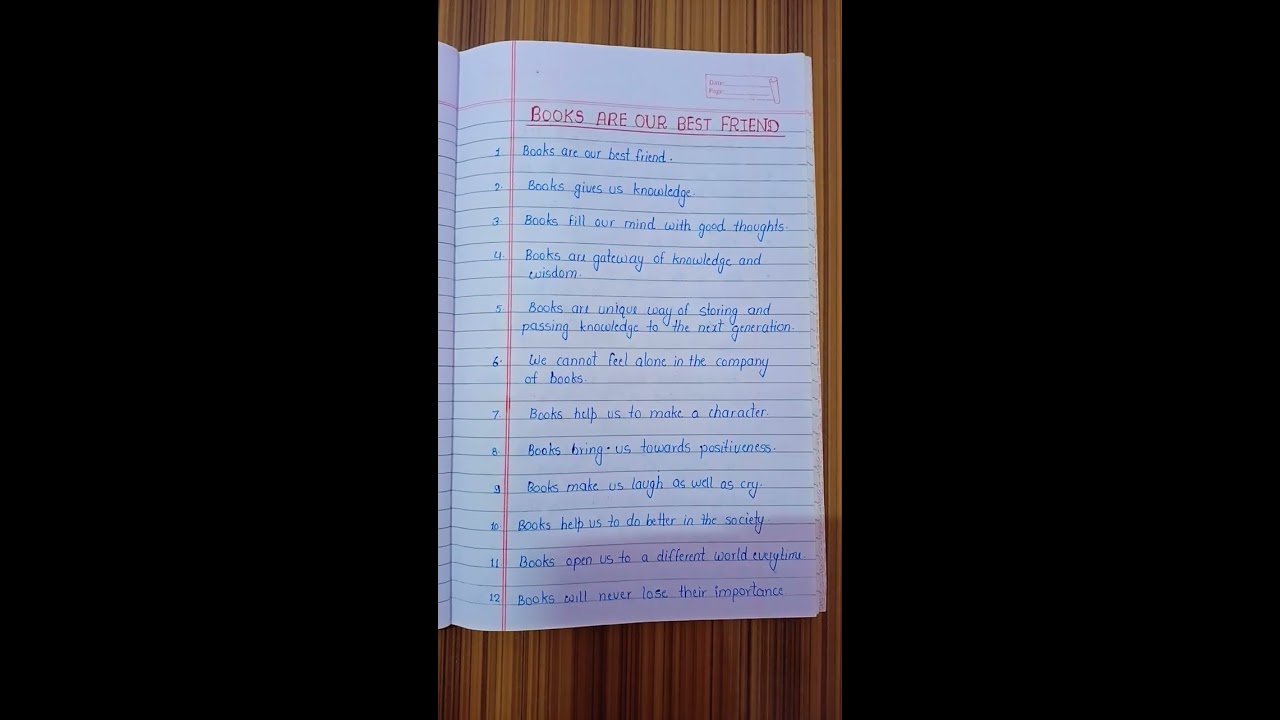 Date:
Page:
BOOKS ARE OUR BEST FRIEND
1. Books are our best friend.
2. Books gives us knowledge.
3. Books fill our mind with good thoughts.
4. Books are gateway of knowledge and
wisdom.
5. Books are unique way of storing and
passing knowledge to the next generation.
6. We cannot feel alone in the company
of books.
7. Books help us to make a character.
8. Books bring us towards positiveness.
9 Books make us laugh as well as cry.
10. Books help us to do better in the society.
11 Books open us to a different world everytime
12 Books will never lose their importance.